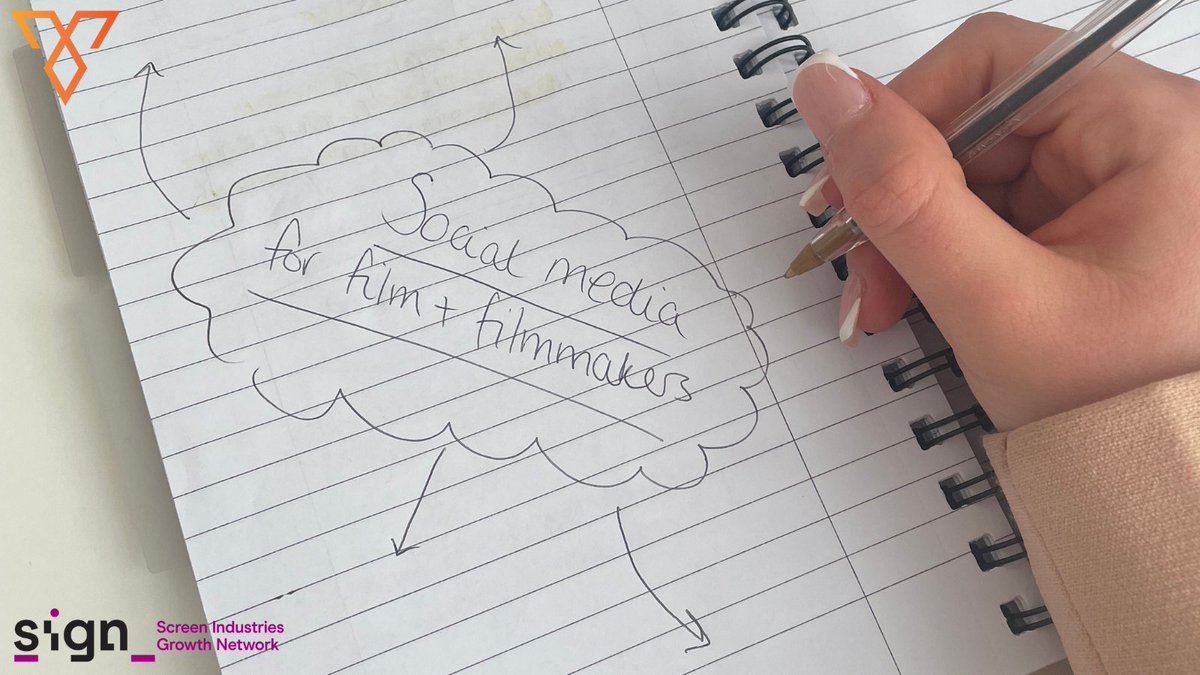 Social media
for film + filmmakers
sign_
Screen Industries
Growth Network